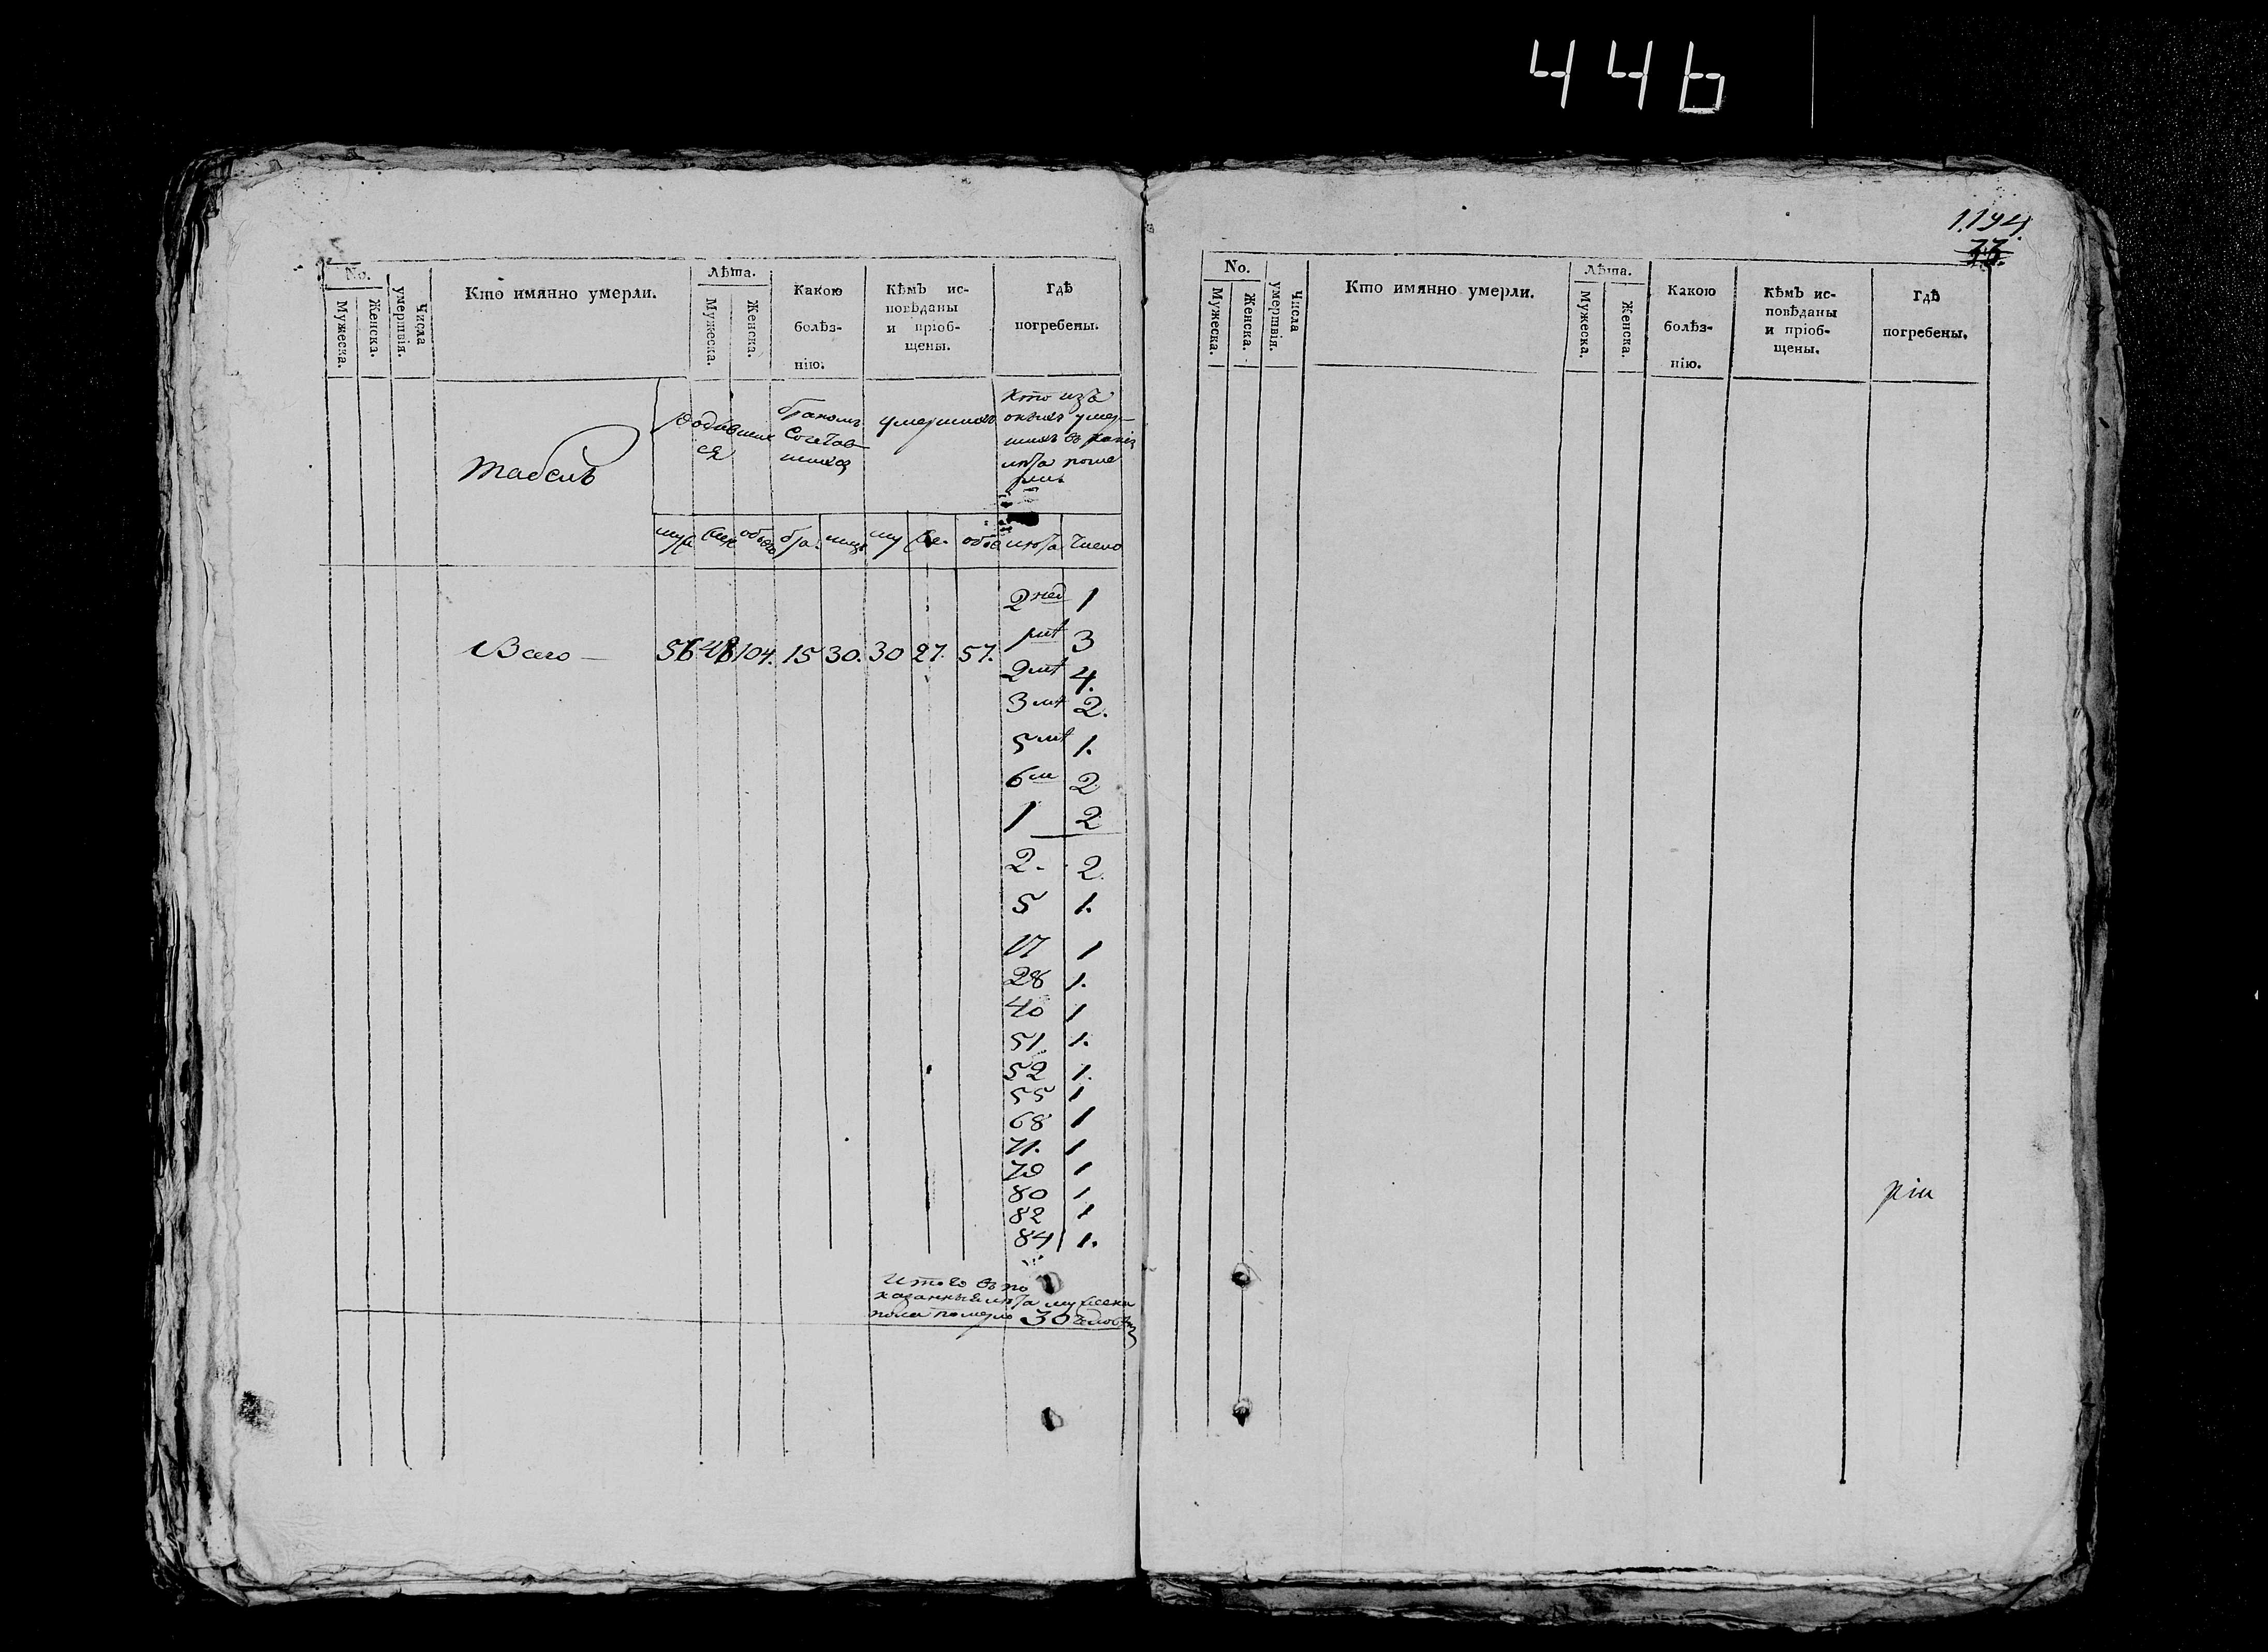 446
1194
77.
No. Лѣта.
Мужеска. Женска. Числа умертвія. Кто имянно умерли. Мужеска. Женска. Какою болѣз- нію. Кѣмъ ис- повѣданы и пріоб- щены. Гдѣ погребены.
Табель
Родивших
ся
браком
Сочетав
шихся
умерших
Кто изъ
оных умер
ших в какія
лѣта поме
рли
муж жен обоего бра. лицъ му же. обое лѣта число
Всего — 56 48 104. 15 30. 30 27. 57.
2 нед 1
3
2 4.
3 2.
5 1.
6 2
1 2
2. 2.
5 1.
17 1
28 1.
40 1
51. 1.
52 1.
55 1
68 1
71. 1
1
80 1
82 1
84 1.
Итого в по
казанные лѣта мужеска
пола померло 30 человѣкъ
No. Лѣта.
Мужеска. Женска. Числа умертвія. Кто имянно умерли. Мужеска. Женска. Какою болѣз- нію. Кѣмъ ис- повѣданы и пріоб- щены. Гдѣ погребены.
рiи